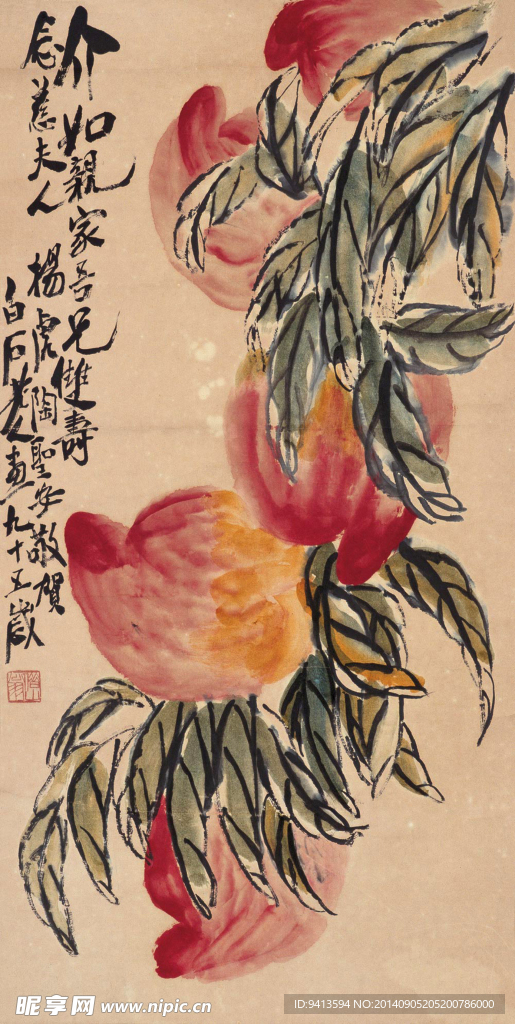 介如親家吾兄雙壽
念慈夫人
楊虎陶聖安敬賀
白石老人畫九十五歲
昵享网 www.nipic.cn
ID:9413594 NO:20140905205200786000